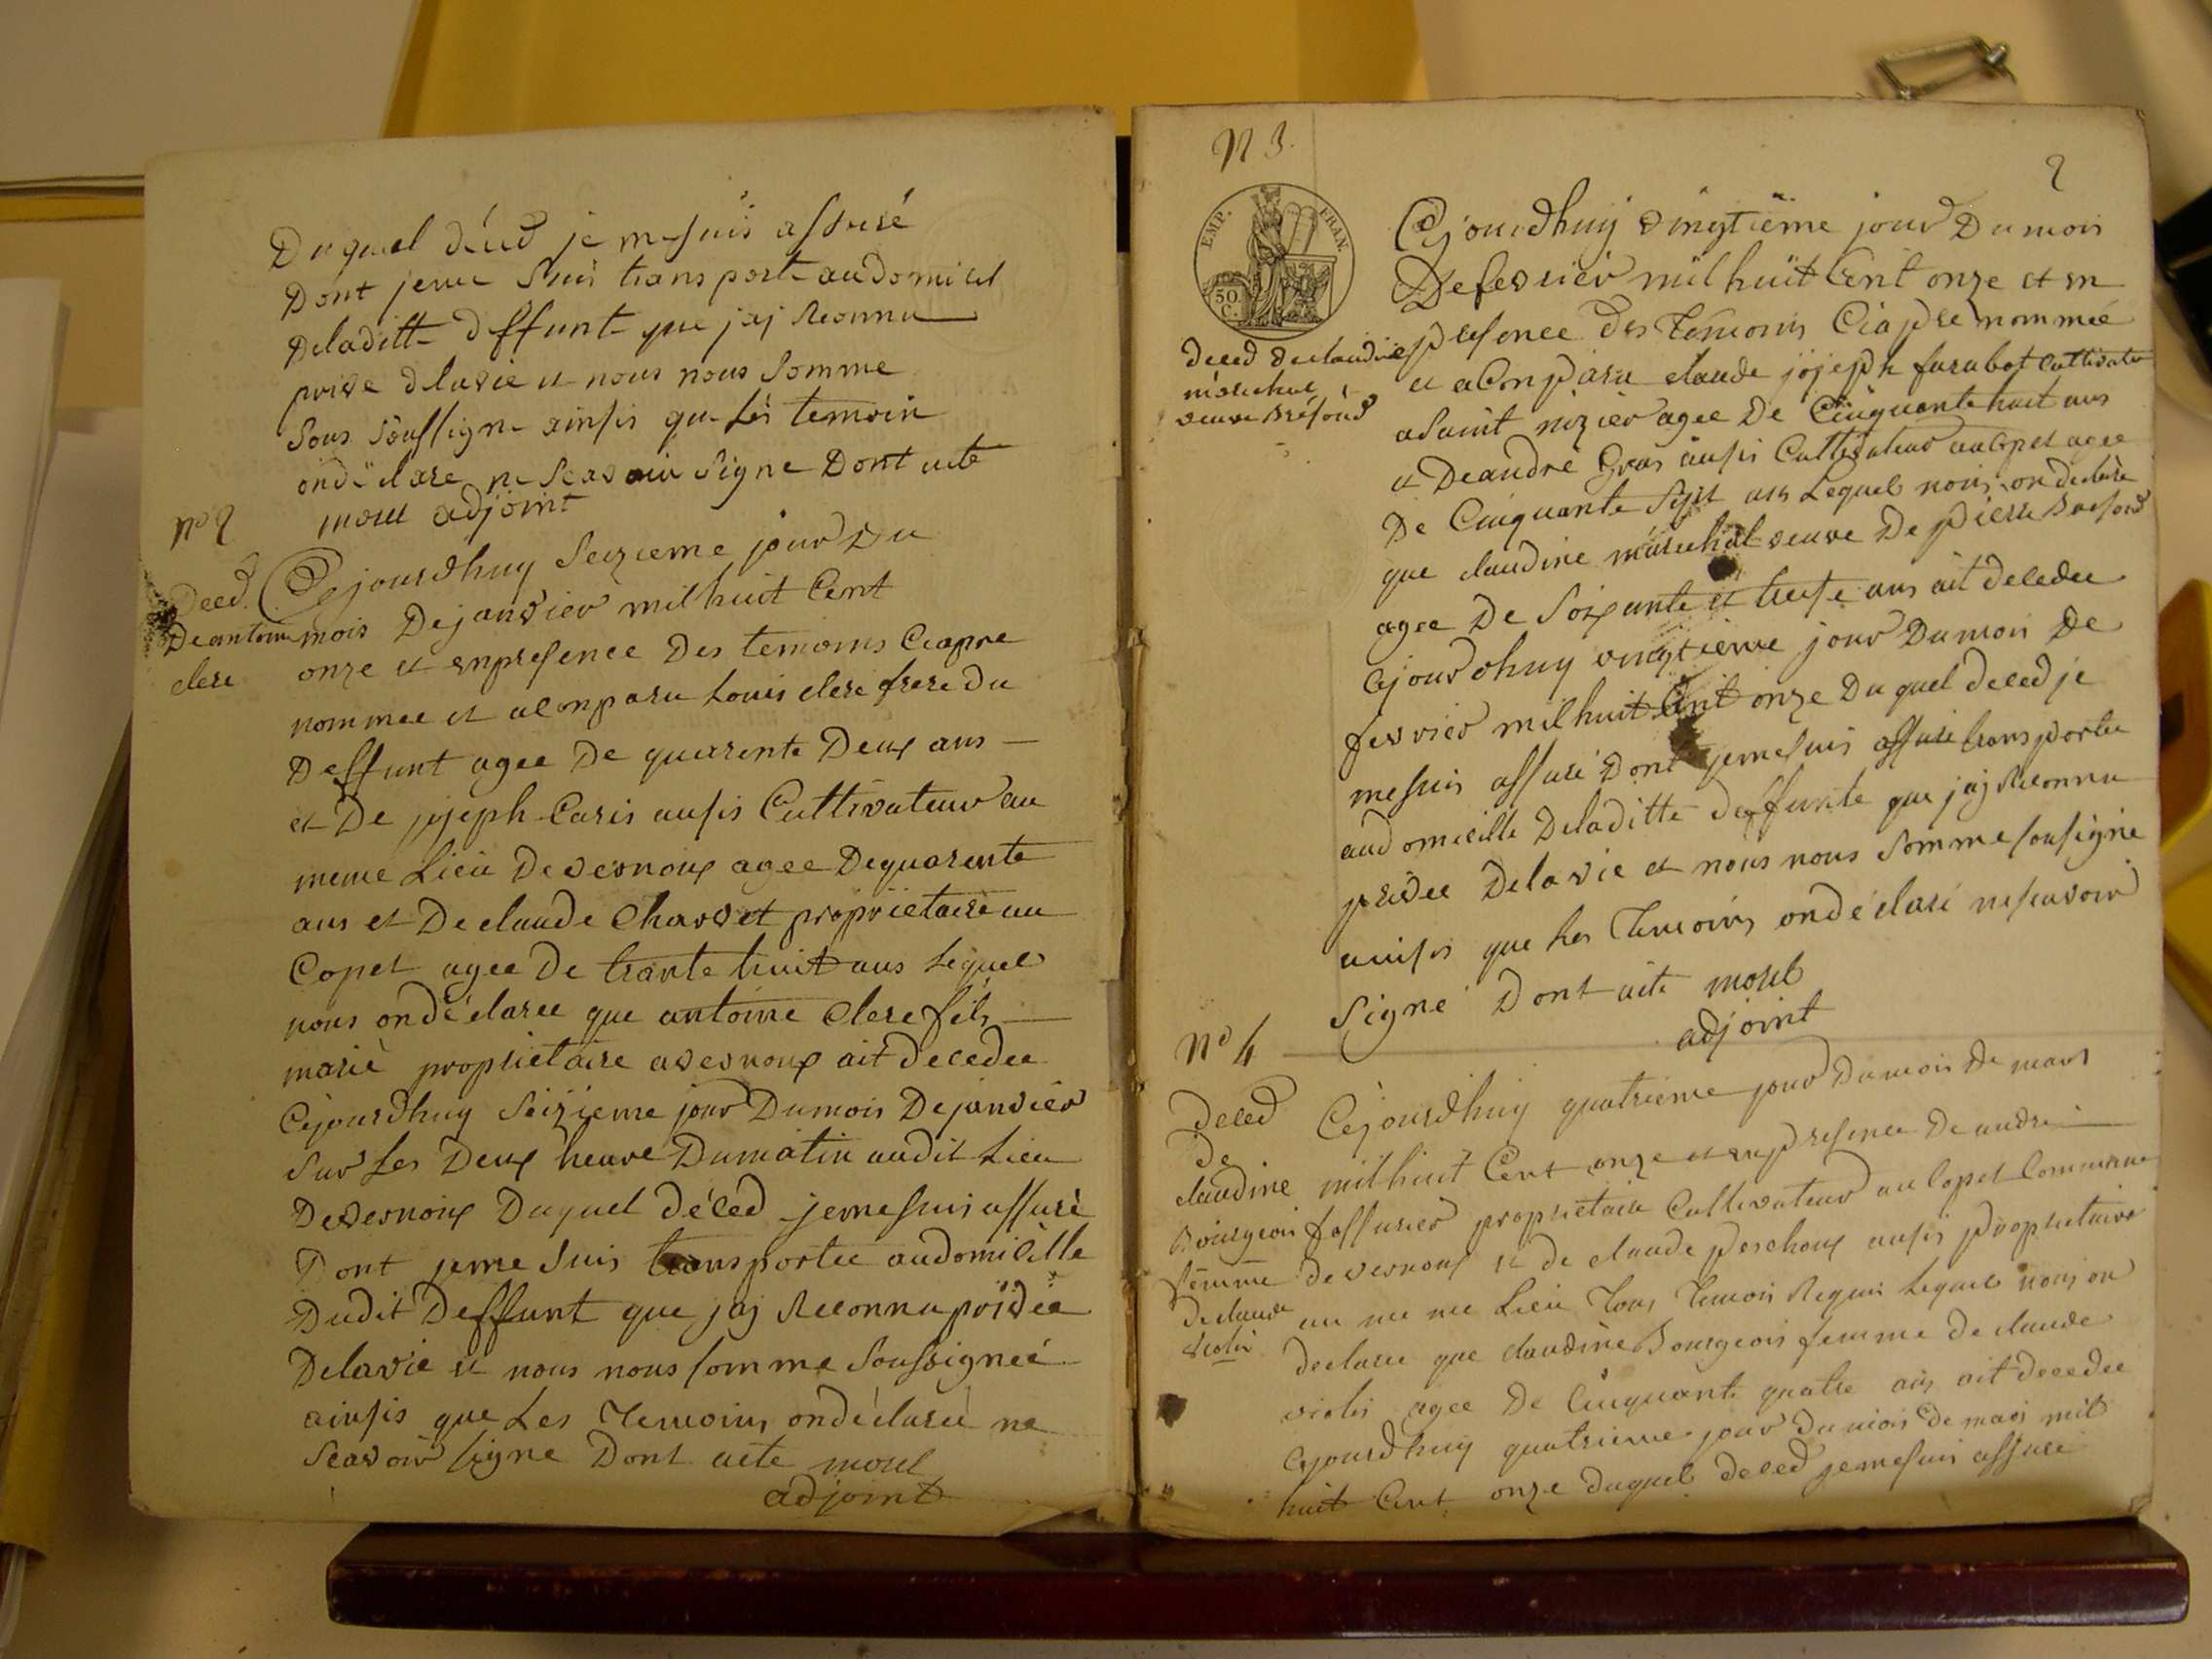 Duquel déced je me suis assuré
Dont jeme suis transporte audomicil
Deladitte deffunt que jaj Reconnu
prive delavie et nous nous somme
sous soussigne ainsis que Les temoin
ondéclare ne scavoir signe Dont acte
morel adjoint
no 2
Deced
De antoine
clere
Cejourdhuy seizieme jour Du
mois Dejanvier mil huit Cent
onze et enpresence Des temoins Ciapre
nommee et aconparu Louis clere frere du
Deffunt agee De quarente Deux ans
et De jojeph Caris ausis Cultivateur au
meme Lieu Devernoux agee Dequarente
ans et De claude Charvet proprietaire au
Copel agee De trante huit ans Lequel
nous ondéclaree que antoine Clere fils
marié proprietaire avernoux ait decedee
Cejourdhuy seizieme jour Dumois Dejanvier
sur Les Deux heure Dumatin audit Lieu
Devernoux Duquel déced jemesuis assuré
Dont jeme suis transportee audomicille
Dudit Deffunt que jaj Reconnu privée
Delavie et nous nous somme soussigneé
ainsis que Les Temoins ondéclareé ne
scavoir signe Dont acte morel
adjoint
N 3.
2
EMP. FRAN.
50 C.
deced declaudine
marechal
veuve
Cejourdhuy vingtiéme jour Dumois
Defevrier mil huit Cent onze et en
presence des Temoins Ciapre nommeé
et aConparu claude jojeph farabot cultivateur
asaint nizier agee De Cinquante huit ans
et Deandré Gras ausis Cultivateur au Copel agee
De Cinquante sept ans Lequel nous ondeclare
que claudine marechal veuve De pierre
agee De soixante et treise ans ait decedee
cejourdhuy vingtieme jour Dumois De
fevrier mil huit Cent onze Duquel deced je
mesuis assuré Dont jemesuis assuré transportee
audomicille Deladitte deffunte que jaj Reconnu
privee Delavie et nous nous somme sousigné
ainsis que Les Temoins ondéclaré nescavoir
signé Dont acte morel
adjoint
no 4
deced
De
claudine
Bourgeois
femme
declaude
violis
Cejourdhuy quatrieme jour Dumois De mars
mil huit Cent onze et enpresence De andré
fossurier proprietaire Cultivateur au Copel Commune
devernoux et de claude perchoux ausis proprietaire
au me me Lieu Tous Temois Requis Lequel nous on
declaree que claudine Bourgeois femme de claude
violis agee De Cinquante quatre ans ait decedee
Cejourdhuy quatrieme jour dumois De mars mil
huit Cent onze duquel deced jemesuis assure